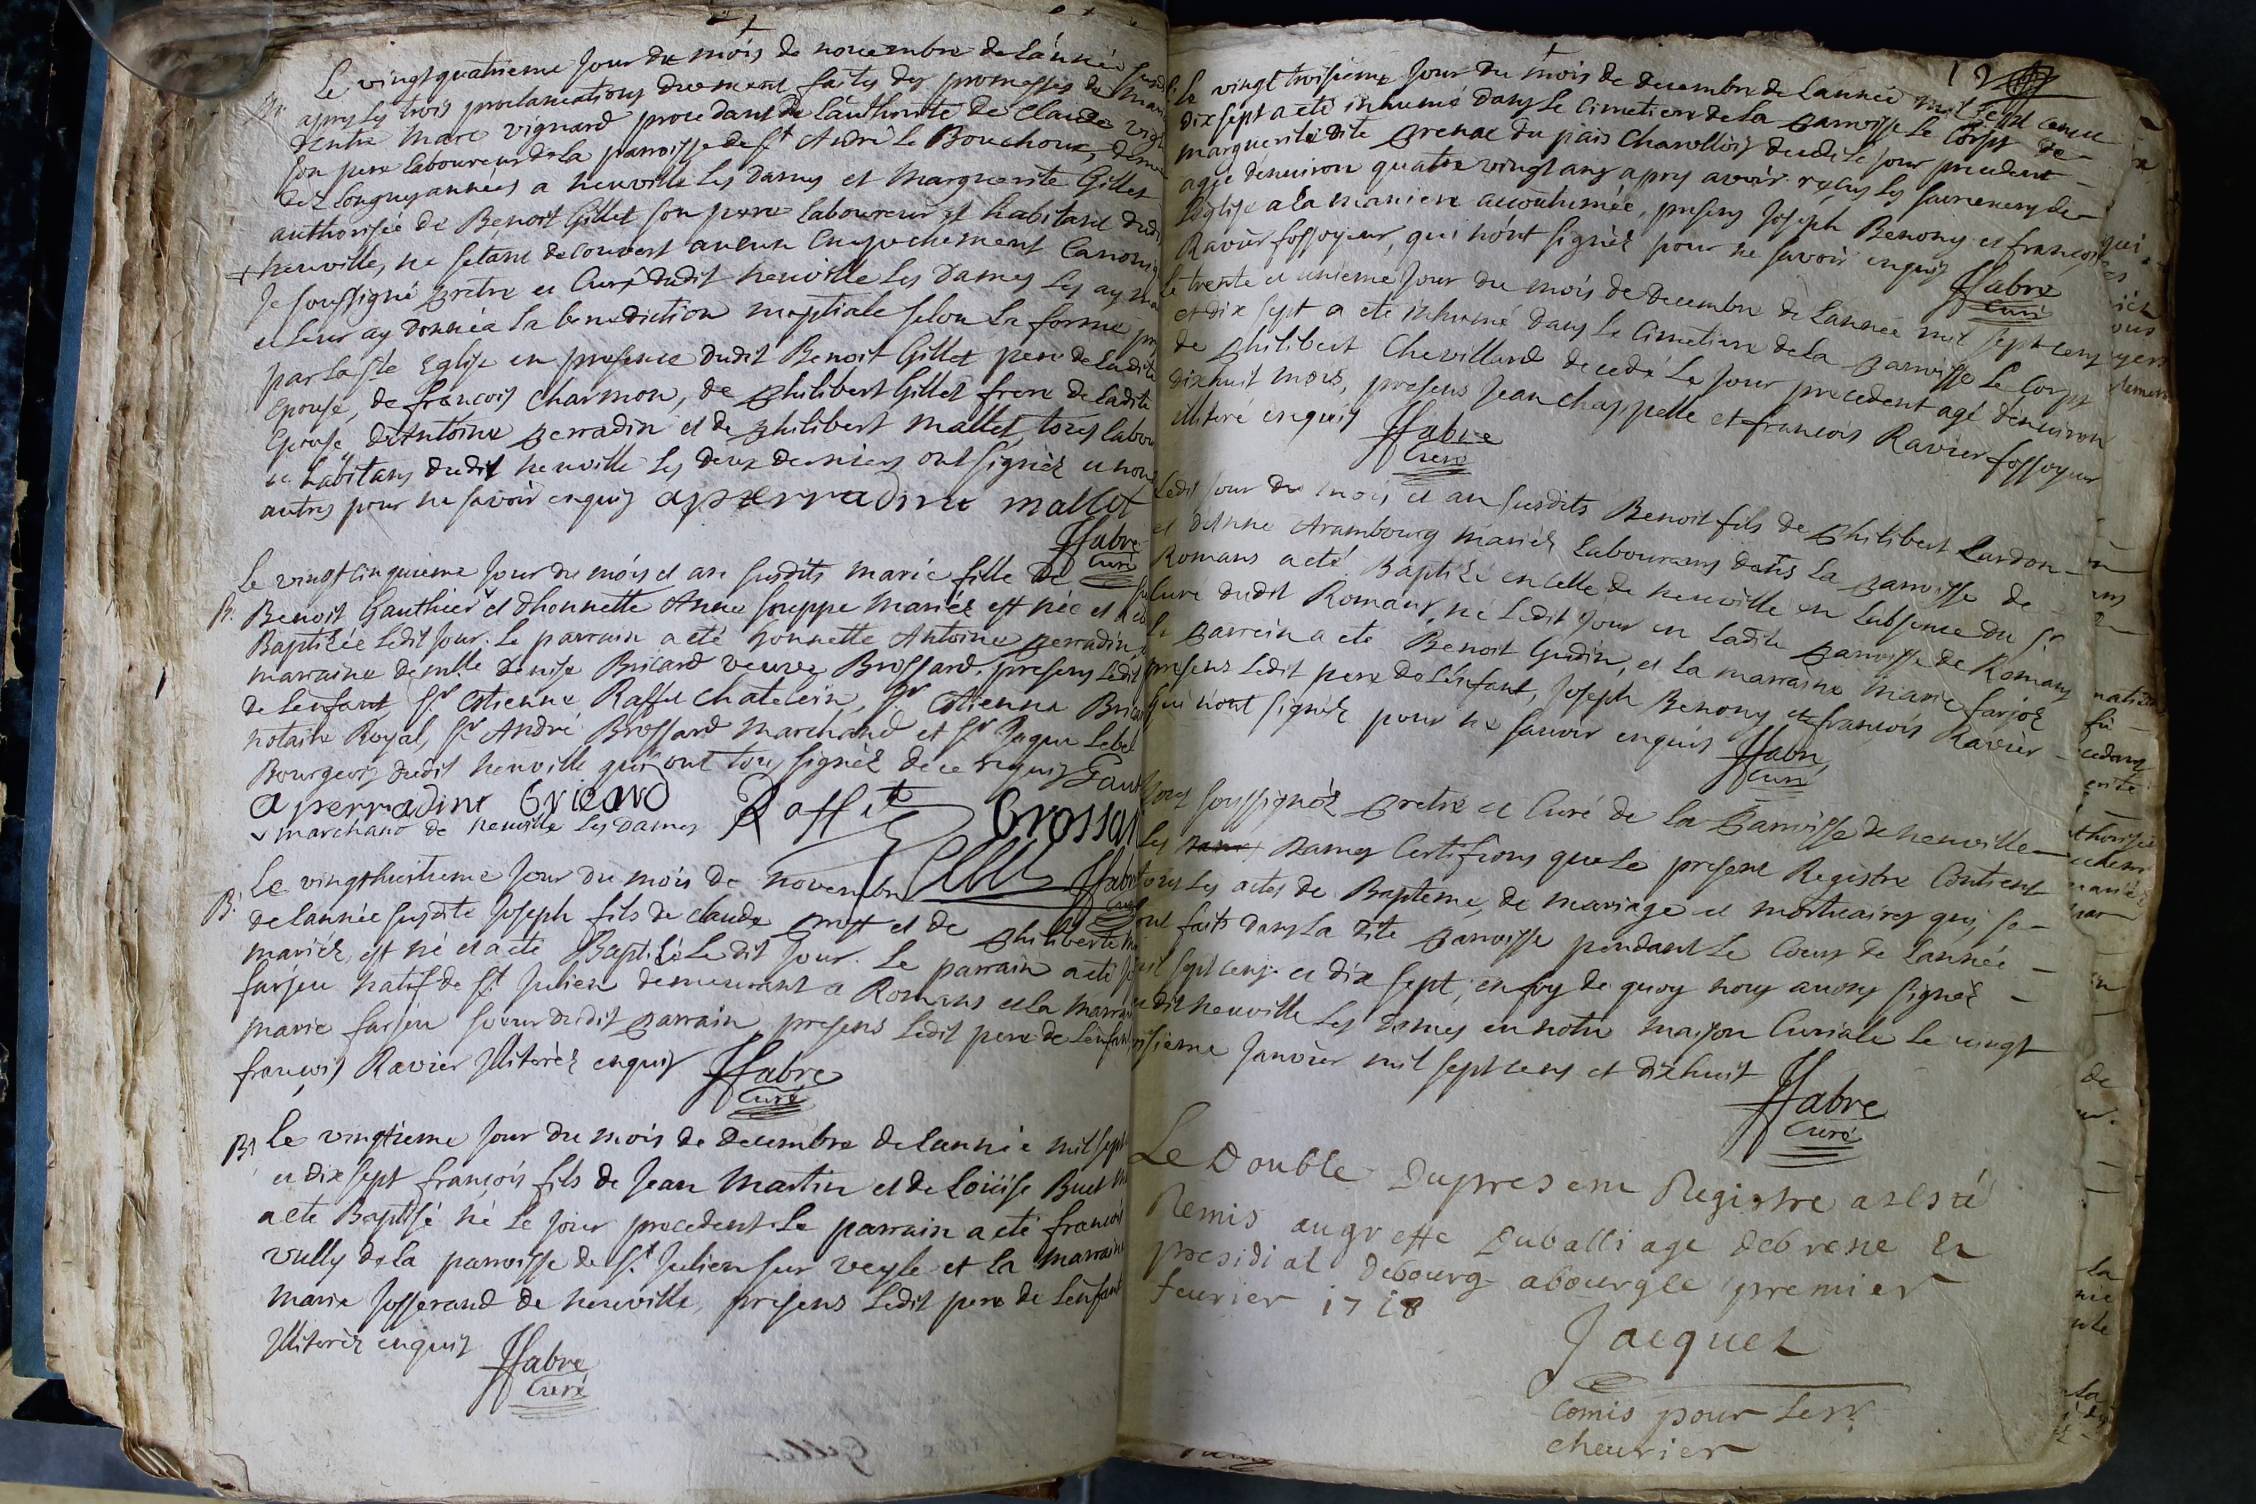 Le vingt quatrieme Jour du mois de novembre de Lannée
apres les trois proclamations duement faites des promesses de
Dentre Marc vignard procedant de Lauthorité de Claude
son pere laboureur de la parroisse de St André le Bouchoux,
des longues années a neuville les Dames et Marguerite Gillet
authorisée de Benoit Gillet son pere laboureur et habitant dudit
neuville, ne setant decouvert aucun empechement
Je soussigné pretre et Curé dudit neuville les Dames les ay
et leur ay donnée la benediction nuptiale selon la forme
par la Ste Eglise en presence dudit Benoit Gillet pere de ladite
Epouse, de francois Charmon, de philibert Gillet frere de ladite
Epouse, d'Antoine perradin et de philibert mallet, tous
et habitans dudit neuville les deux derniers ont signés et non
autres pour ne savoir enquis aperradint mallet
ffabre
Curé
Le vingt cinquieme Jour du mois et an susdits marie fille de
B. Benoit Gauthier et dhonnette Anne souppe mariés est née et a
Baptisée ledit Jour. Le parrain a eté honnette Antoine perradin,
marraine demlle denise Bricard veuve Brossard, presens ledit
de Lenfant, Sr Etienne Raffet Chatelein, Sr Etienne
notaire Royal, Sr André Brossard Marchand et Sr
Bourgeois dudit neuville qui ont tous signés de ce requis
aperradint Bricard Raffet
marchand de neuville les Dames
ffabre
Le vingthuitieme Jour du mois de novembre
B. de lannée susdite Joseph fils de claude et de philiberte
mariés, est né et a eté Baptisé le dit Jour. Le parrain a eté
farjeu natif de St Julien demeurant a Romans et la
marie farjeu soeur dudit parrain, presens ledit pere de Lenfant
francois Ravier Illiterés enquis ffabre
Curé
B. Le vingtieme Jour du mois de decembre de lannée mil sept
et dix sept francois fils de Jean Martin et de Loüise Buet
a eté Baptisé né le jour precedent. Le parrain a eté francois
vully de la parroisse de St Julien sur veyle et la marraine
marie Josserand de neuville, presens ledit pere de Lenfant
Illiterés enquis
ffabre
Curé
12
Le vingt troisieme Jour du mois de decembre de Lannée mil sept cent
dix sept a eté inhumé dans le Cimetiere de la parroisse le Corps de
marguerite dite grenat du païs Charollois decedée le jour precedent
agée denviron quatre vingt ans apres avoir reçus les sacremens de
Leglise a la maniere accoutumée, presens Joseph Benony et francois
Ravier fossoyeur, qui n'ont signés pour ne savoir enquis ffabre
Curé
Le trente et unieme Jour du mois de decembre de Lannée mil sept cens
et dix sept a eté inhumé dans le Cimetiere de la parroisse le Corps
de philibert Chevillard decedé le Jour precedent agé denviron
dix huit mois, presens Jean chappelle et francois Ravier fossoyeur
illiteré enquis ffabre
Curé
Ledit jour du mois et an susdits Benoit fils de philibert Lardon
et d'Anne Arambourg mariés laboureurs dans la parroisse de
Romans a eté Baptisé en celle de neuville en Labsence du Sr
Curé dudit Romans, né ledit jour en ladite parroisse de Romans
Le parrein a eté Benoit Gudin, et la marraine marie farjos
presens ledit pere de Lenfant, Joseph Benony et francois Ravier
qui nont signés pour ne savoir enquis ffabre
Curé
Nous soussignés pretre et Curé de la parroisse de neuville
les Dames Certifions que le present Registre Contient
tous les actes de Bapteme, de mariage et mortuaires qui se
sont faits dans la dite parroisse pendant le Cours de lannée
mil sept cens et dix sept, en foy de quoy nous avons signés
a dit neuville les dames en notre maison Curiale le vingt
Janvier mil sept cens et dixhuit
ffabre
Curé
Le Double Dupresent Registre aesté
Remis augreffe Duballiage debresse et
presidial debourg abourg le premier
feurier 1718
Jacquet
Comis pour Le sr
cheurier